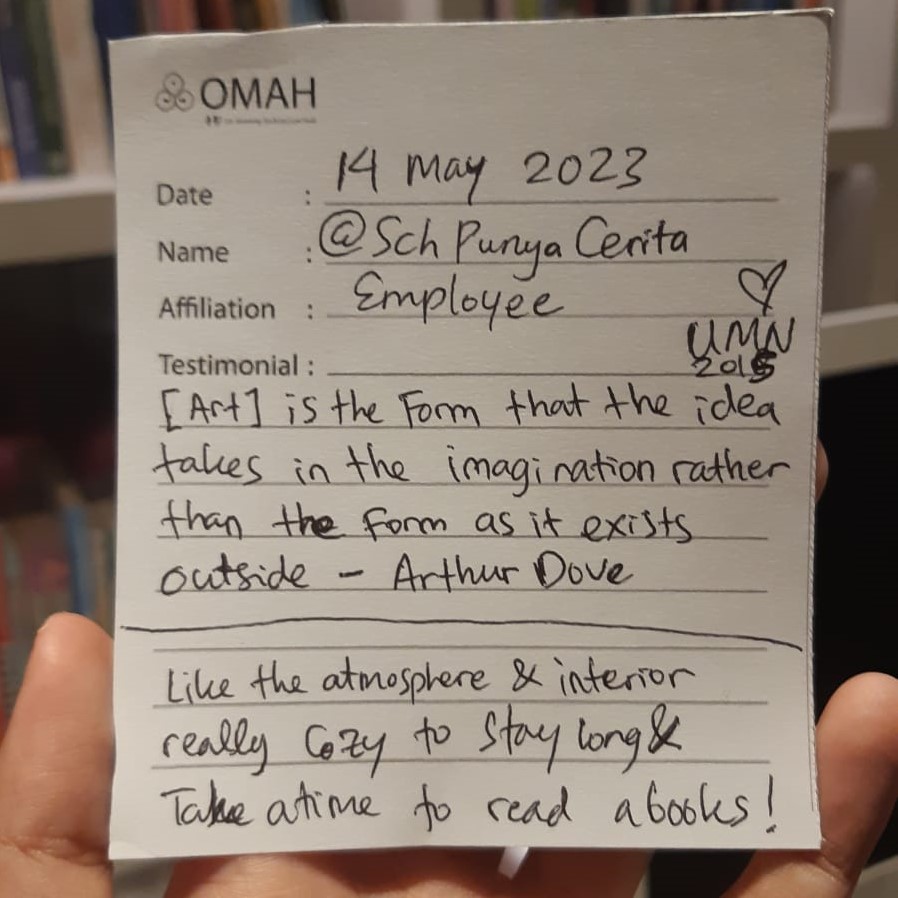 OMAH
Date : 14 May 2023
Name : @Sch Punya Cerita
Affiliation : Employee
UMN
2015
Testimonial :
[Art] is the Form that the idea
takes in the imagination rather
than the Form as it exists
outside - Arthur Dove
Like the atmosphere & interior
really Cozy to Stay long &
Take a time to read a books!